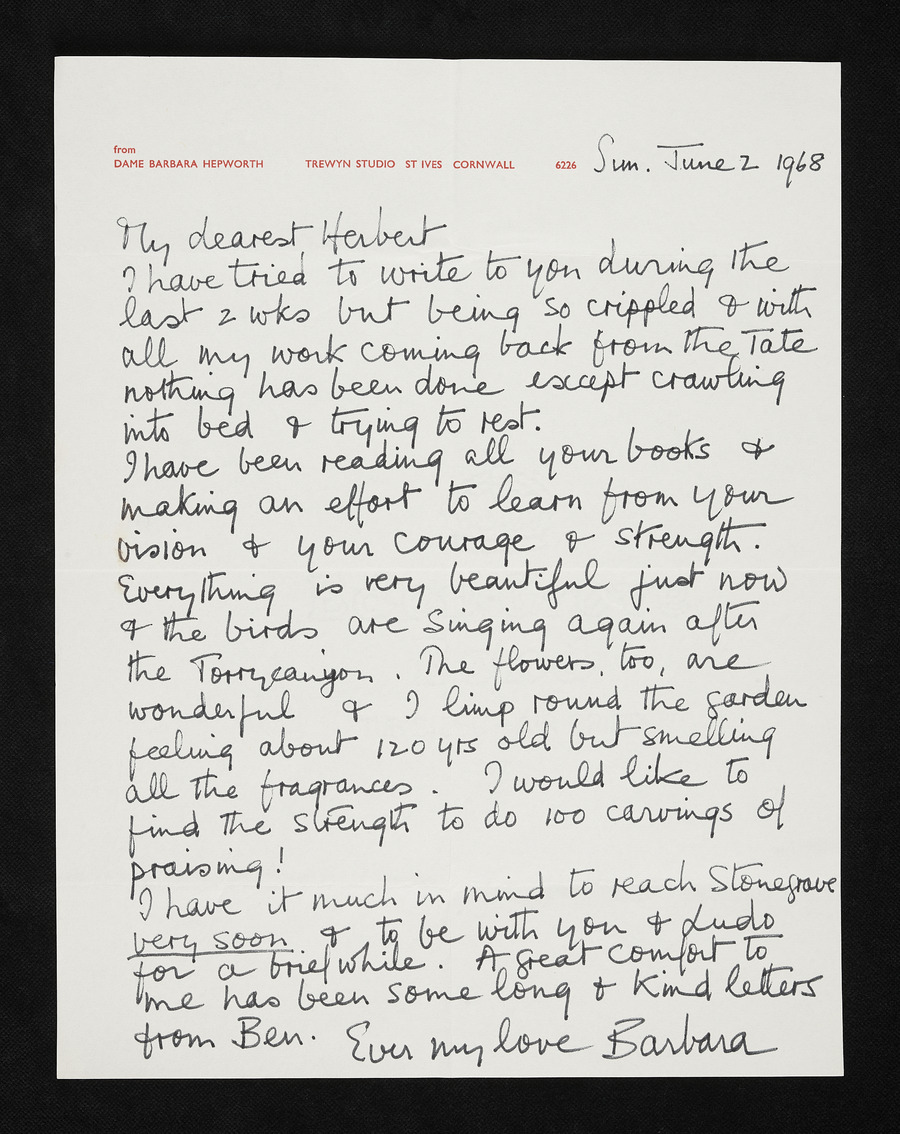 from
DAME BARBARA HEPWORTH TREWYN STUDIO ST IVES CORNWALL 6226 Sun. June 2 1968
My dearest Herbert
I have tried to write to you during the
last 2 wks but being so crippled & with
all my work coming back from the Tate
nothing has been done except crawling
into bed & trying to rest.
I have been reading all your books &
making an effort to learn from your
vision & your courage & strength.
Everything is very beautiful just now
& the birds are singing again after
the Torrycanyon. The flowers, too, are
wonderful & I limp round the garden
feeling about 120 yrs old but smelling
all the fragrances. I would like to
find the strength to do 100 carvings of
praising!
I have it much in mind to reach Stonegrave
very soon & to be with you & Ludo
for a brief while. A great comfort to
me has been some long & kind letters
from Ben. Ever my love Barbara